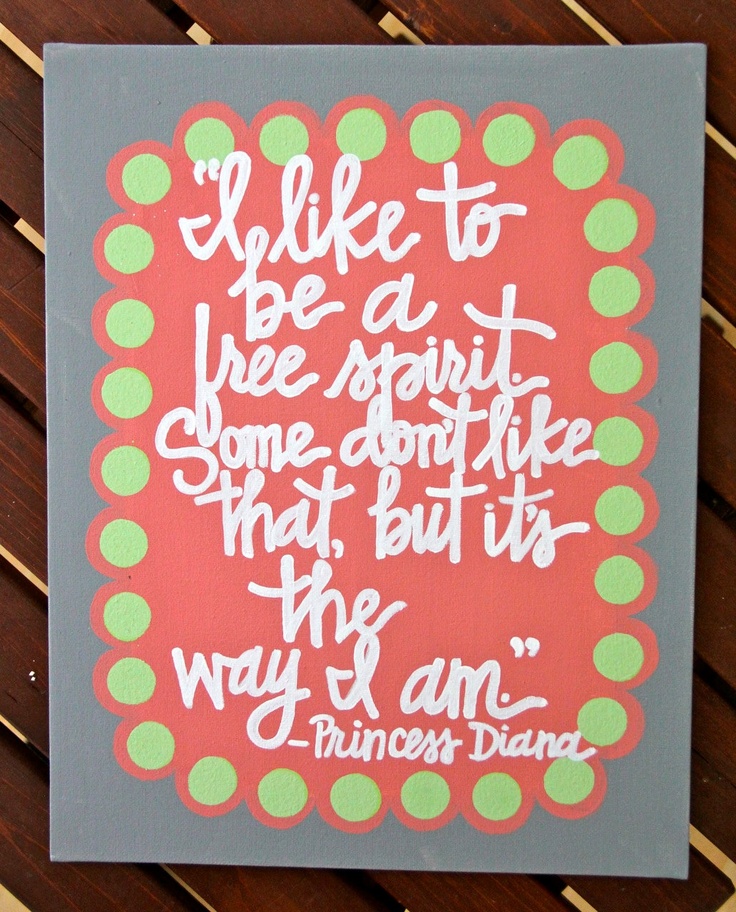 "I like to
be a
free spirit.
Some don't like
that, but it's
the
way I am."
-Princess Diana